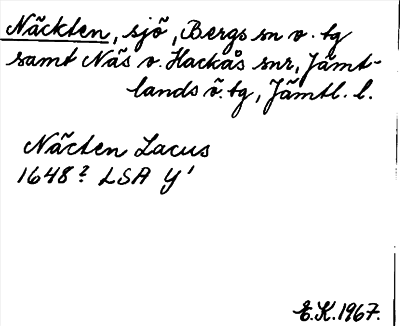 Näckten, sjö, Bergs sn o. tg
samt Näs o. Hackås snr, Jämt-
lands ö. tg, Jämtl. l.
Näcten Lacus
1648? LSA Y'
E.K. 1967.